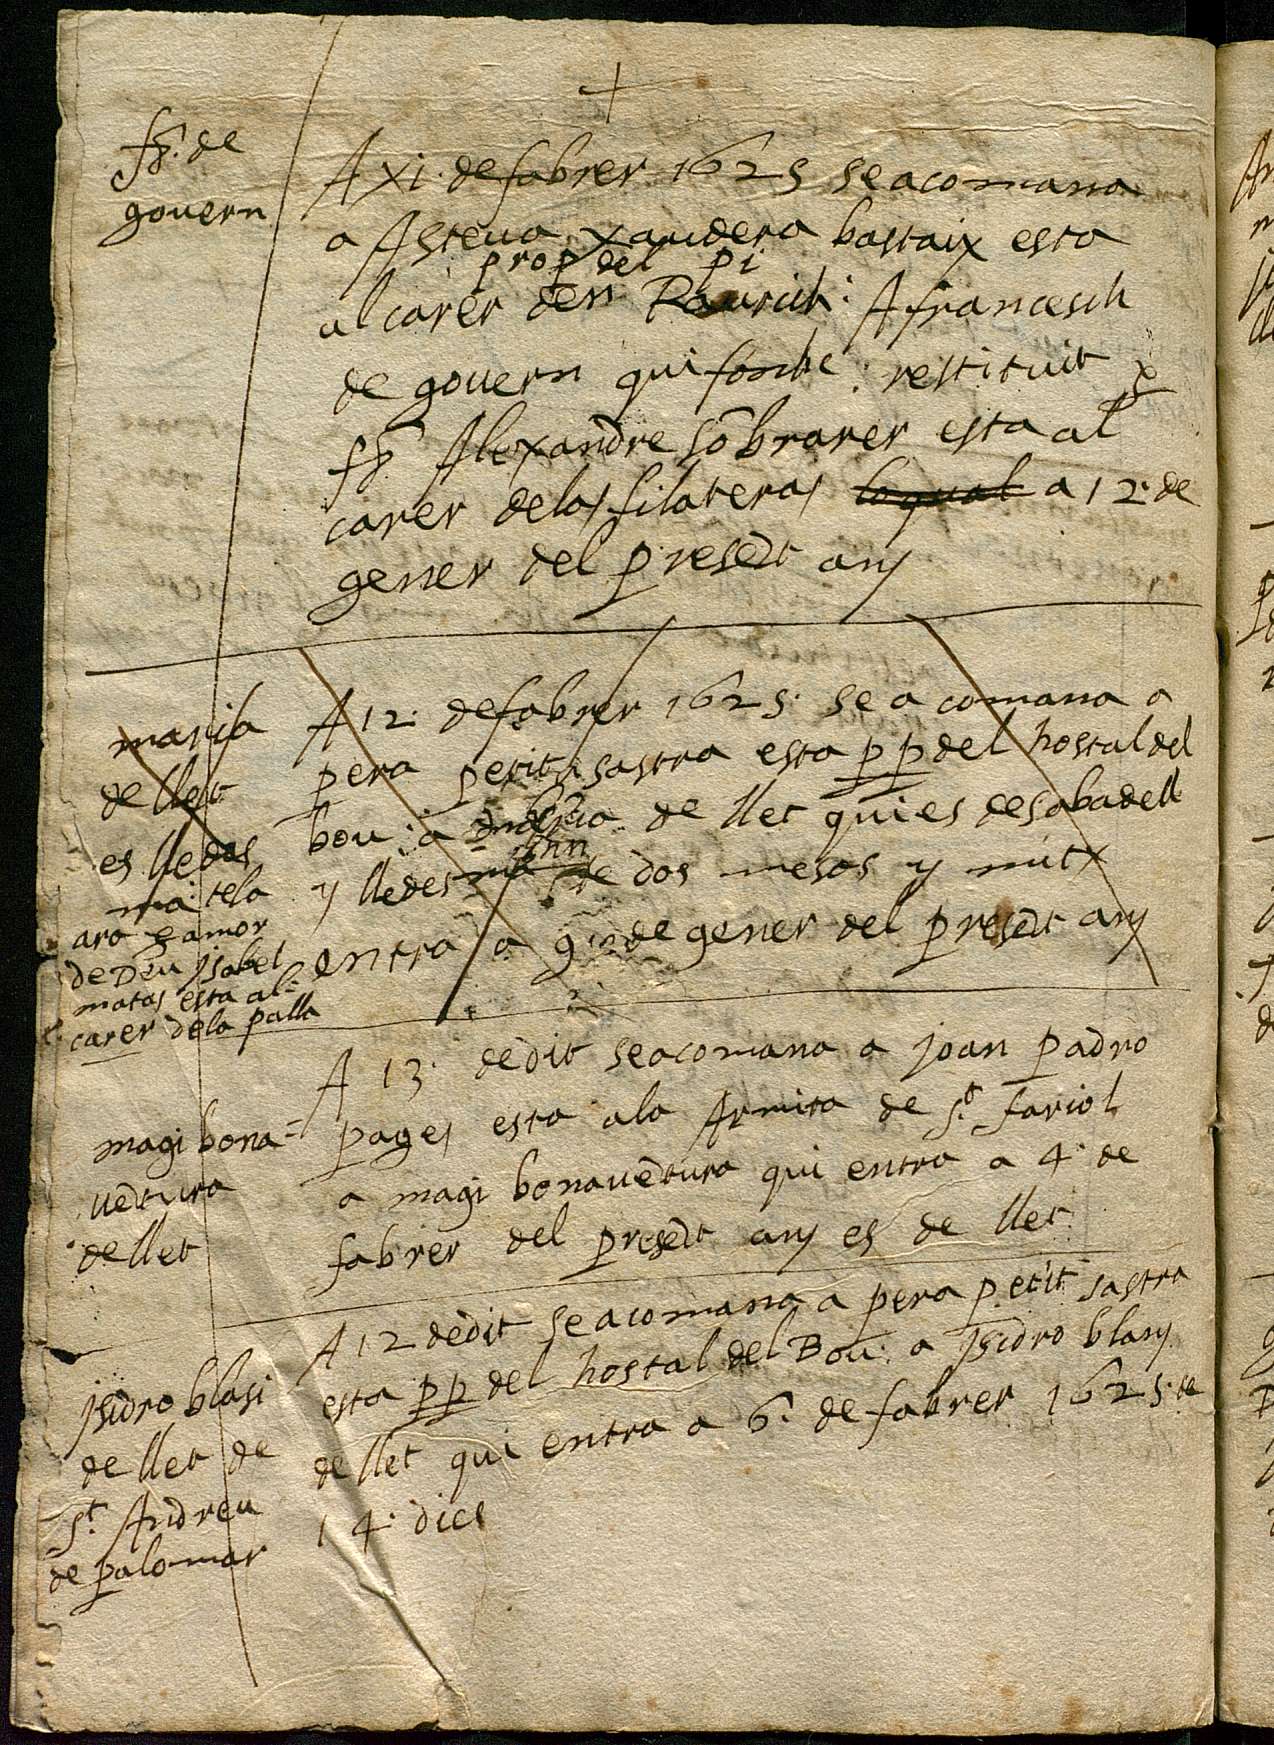 +
fſ. de
govern
A xi. de fabrer 1625 se acomana
a Asteva xandera bastaix esta
prop del pi
al carer den Raurich: A francesch
de govern qui fonch: restituit p
fſ Alexandre sobrarer esta al
carer de las filateras loqual a 12. de
gener del presēt any
maria
de llet
es lledes
ma: tela
ara p amor
de Deu jsabel
matas esta al
carer dela palla
A 12. de fabrer 1625. se a comana a
pera petit sastra esta p p del hostal del
bou: a de llet qui es de sabadell
y lledesma de dos mesos y mitx
entra a 9 de gener del presēt any
magi bona=
vētura
de llet
A 13. de dit se acomana a joan padro
pages esta a la Armita de St. fariol
a magi bonavētura qui entra a 4. de
fabrer del presēt any es de llet
jsidro blasi
de llet de
St. Andreu
de palomar
A 12 de dit se acomana a pera petit sastra
esta p p del hostal del Bou: a jsidro blasy
de llet qui entra a 6. de fabrer 1625. de
14. dies